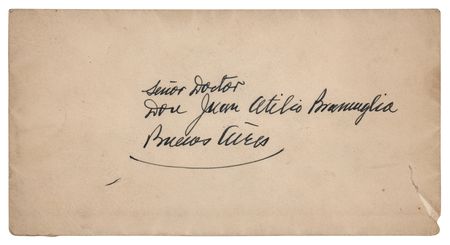 Señor Doctor
Don Juan Atilio Bramuglia
Buenos Aires